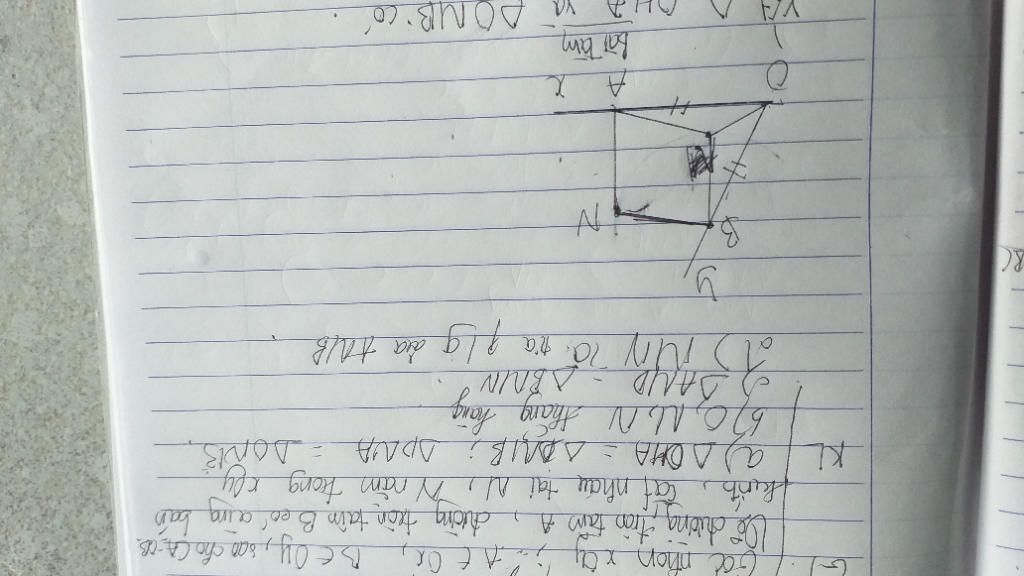 GT Góc nhọn xOy; A ∈ Ox, B ∈ Oy, sao cho OA=OB.
Vẽ đường tròn tâm A, đường tròn tâm B có cùng bán
kính, cắt nhau tại M, N nằm trong xOy
KL a) ΔOMA = ΔOMB; ΔONA = ΔONB.
b) O, M, N thẳng hàng
c) ΔAMN = ΔBMN
d) MN là tia p/g của AMB
y
B
N
O A x
bài làm
Xét Δ OMA và ΔOMB có